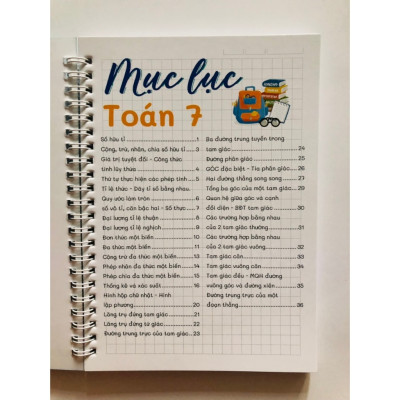 Mục lục
Toán 7
Số hữu tỉ 1
Cộng, trừ, nhân, chia số hữu tỉ 3
Giá trị tuyệt đối - Công thức
tính lũy thừa 4
Thứ tự thực hiện các phép tính 5
Tỉ lệ thức - Dãy tỉ số bằng nhau. 6
Quy ước làm tròn 6
số vô tỉ, căn bậc hai - Số thực 7
Đại lượng tỉ lệ thuận 8
Đại lượng tỉ lệ nghịch 9
Đơn thức một biến 10
Đa thức một biến 11
Cộng trừ đa thức một biến 13
Phép nhân đa thức một biến 14
Phép chia đa thức một biến 15
Thống kê và xác suất 16
Hình hộp chữ nhật - Hình
lập phương 20
Lăng trụ đứng tam giác 21
Lăng trụ đứng tứ giác 22
Đường trung trực của tam giác 23
Ba đường trung tuyến trong
tam giác 24
Đường phân giác 25
GÓC đặc biệt - Tia phân giác 26
Hai đường thẳng song song 27
Tổng ba góc của một tam giác 29
Quan hệ giữa góc và cạnh
đối diện - BĐT tam giác 30
Các trường hợp bằng nhau
của 2 tam giác thường 31
Các trường hợp bằng nhau
của 2 tam giác vuông 32
Tam giác cân 33
Tam giác vuông cân 34
Tam giác đều - MQH đường
vuông góc và đường xiên 35
Đường trung trực của một
đoạn thẳng 36